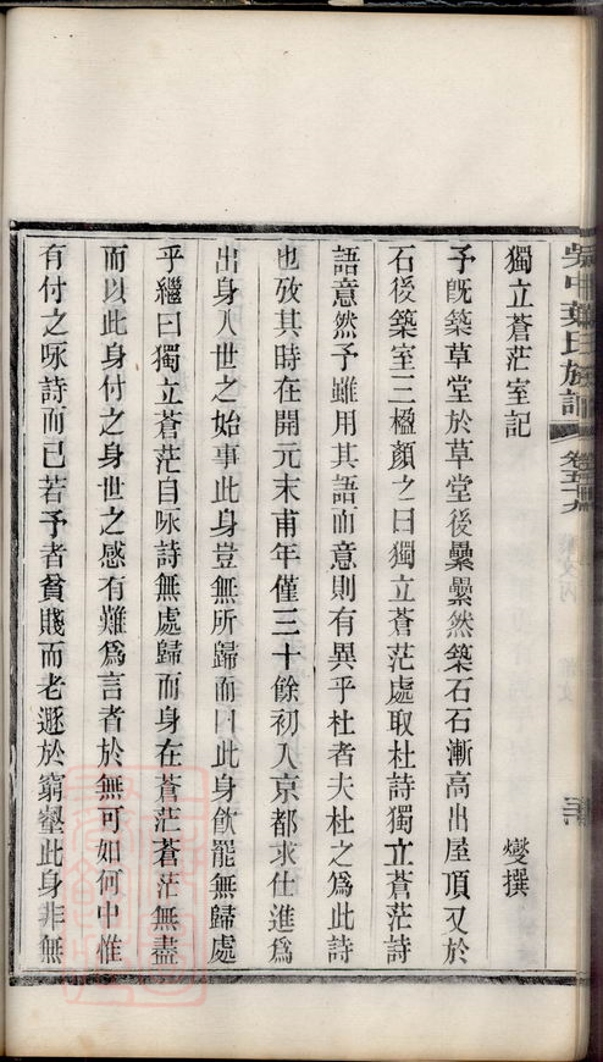 吳中葉氏族譜
卷五十九
獨立蒼茫室記
燮撰
予旣築草堂於草堂後纍纍然築石石漸高出屋頂又於
石後築室三楹顔之曰獨立蒼茫處取杜詩獨立蒼茫詩
語意然予雖用其語而意則有異乎杜者夫杜之爲此詩
也攷其時在開元末甫年僅三十餘初入京都求仕進爲
出身入世之始事此身豈無所歸而曰此身飮罷無歸處
乎繼曰獨立蒼茫自咏詩無處歸而身在蒼茫蒼茫無盡
而以此身付之身世之感有難爲言者於無可如何中惟
有付之咏詩而已若予者貧賤而老遯於窮壑此身非無